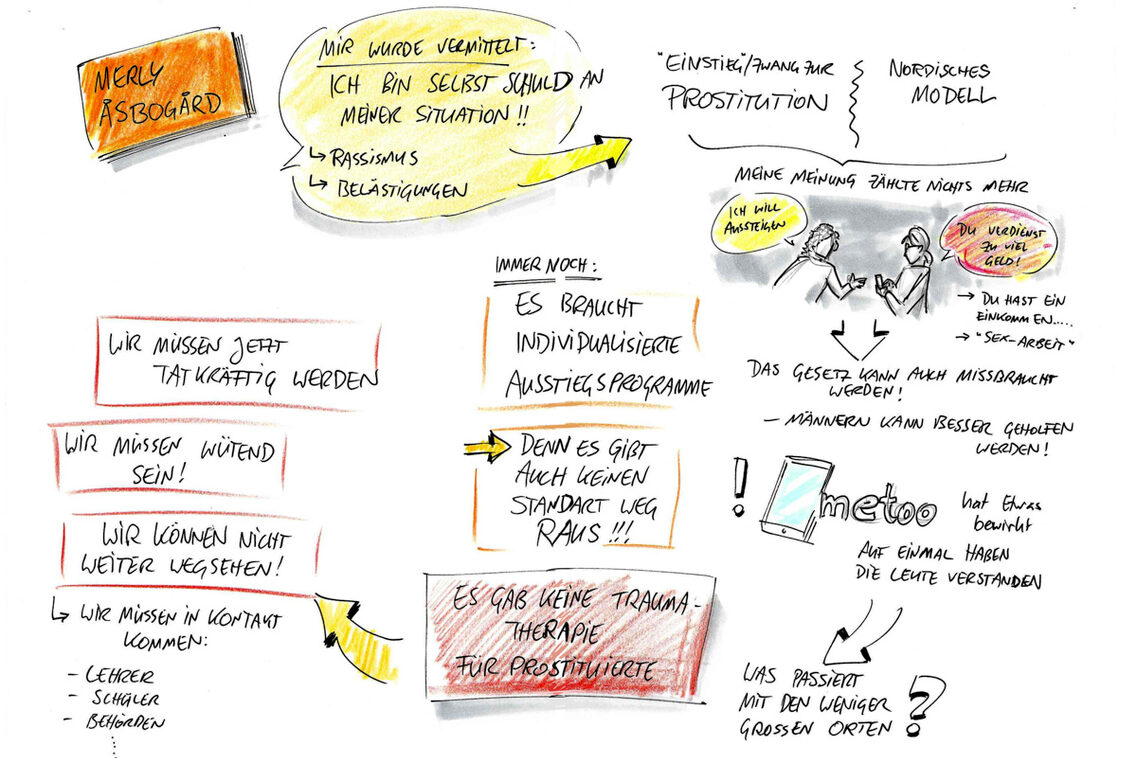 MERLY
ÅSBOGÅRD
MIR WURDE VERMITTELT:
ICH BIN SELBST SCHULD AN
MEINER SITUATION!!
↳ RASSISMUS
↳ BELÄSTIGUNGEN
"EINSTIEG"/ZWANG ZUR
PROSTITUTION
NORDISCHES
MODELL
MEINE MEINUNG ZÄHLTE NICHTS MEHR
ICH WILL
AUSSTEIGEN
DU VERDIENST
ZU VIEL
GELD!
→ DU HAST EIN
EINKOMMEN.....
→ "SEX-ARBEIT"
DAS GESETZ KANN AUCH MISSBRAUCHT
WERDEN!
- MÄNNERN KANN BESSER GEHOLFEN
WERDEN!
! metoo hat Etwas
bewirkt
AUF EINMAL HABEN
DIE LEUTE VERSTANDEN
WAS PASSIERT
MIT DEN WENIGER
GROSSEN ORTEN ?
IMMER NOCH:
ES BRAUCHT
INDIVIDUALISIERTE
AUSSTIEGSPROGRAMME
DENN ES GIBT
AUCH KEINEN
STANDART WEG
RAUS!!!
ES GAB KEINE TRAUMA-
THERAPIE
FÜR PROSTITUIERTE
WIR MÜSSEN JETZT
TATKRÄFTIG WERDEN
WIR MÜSSEN WÜTEND
SEIN!
WIR KÖNNEN NICHT
WEITER WEGSEHEN!
↳ WIR MÜSSEN IN KONTAKT
KOMMEN:
- LEHRER
- SCHÜLER
- BEHÖRDEN